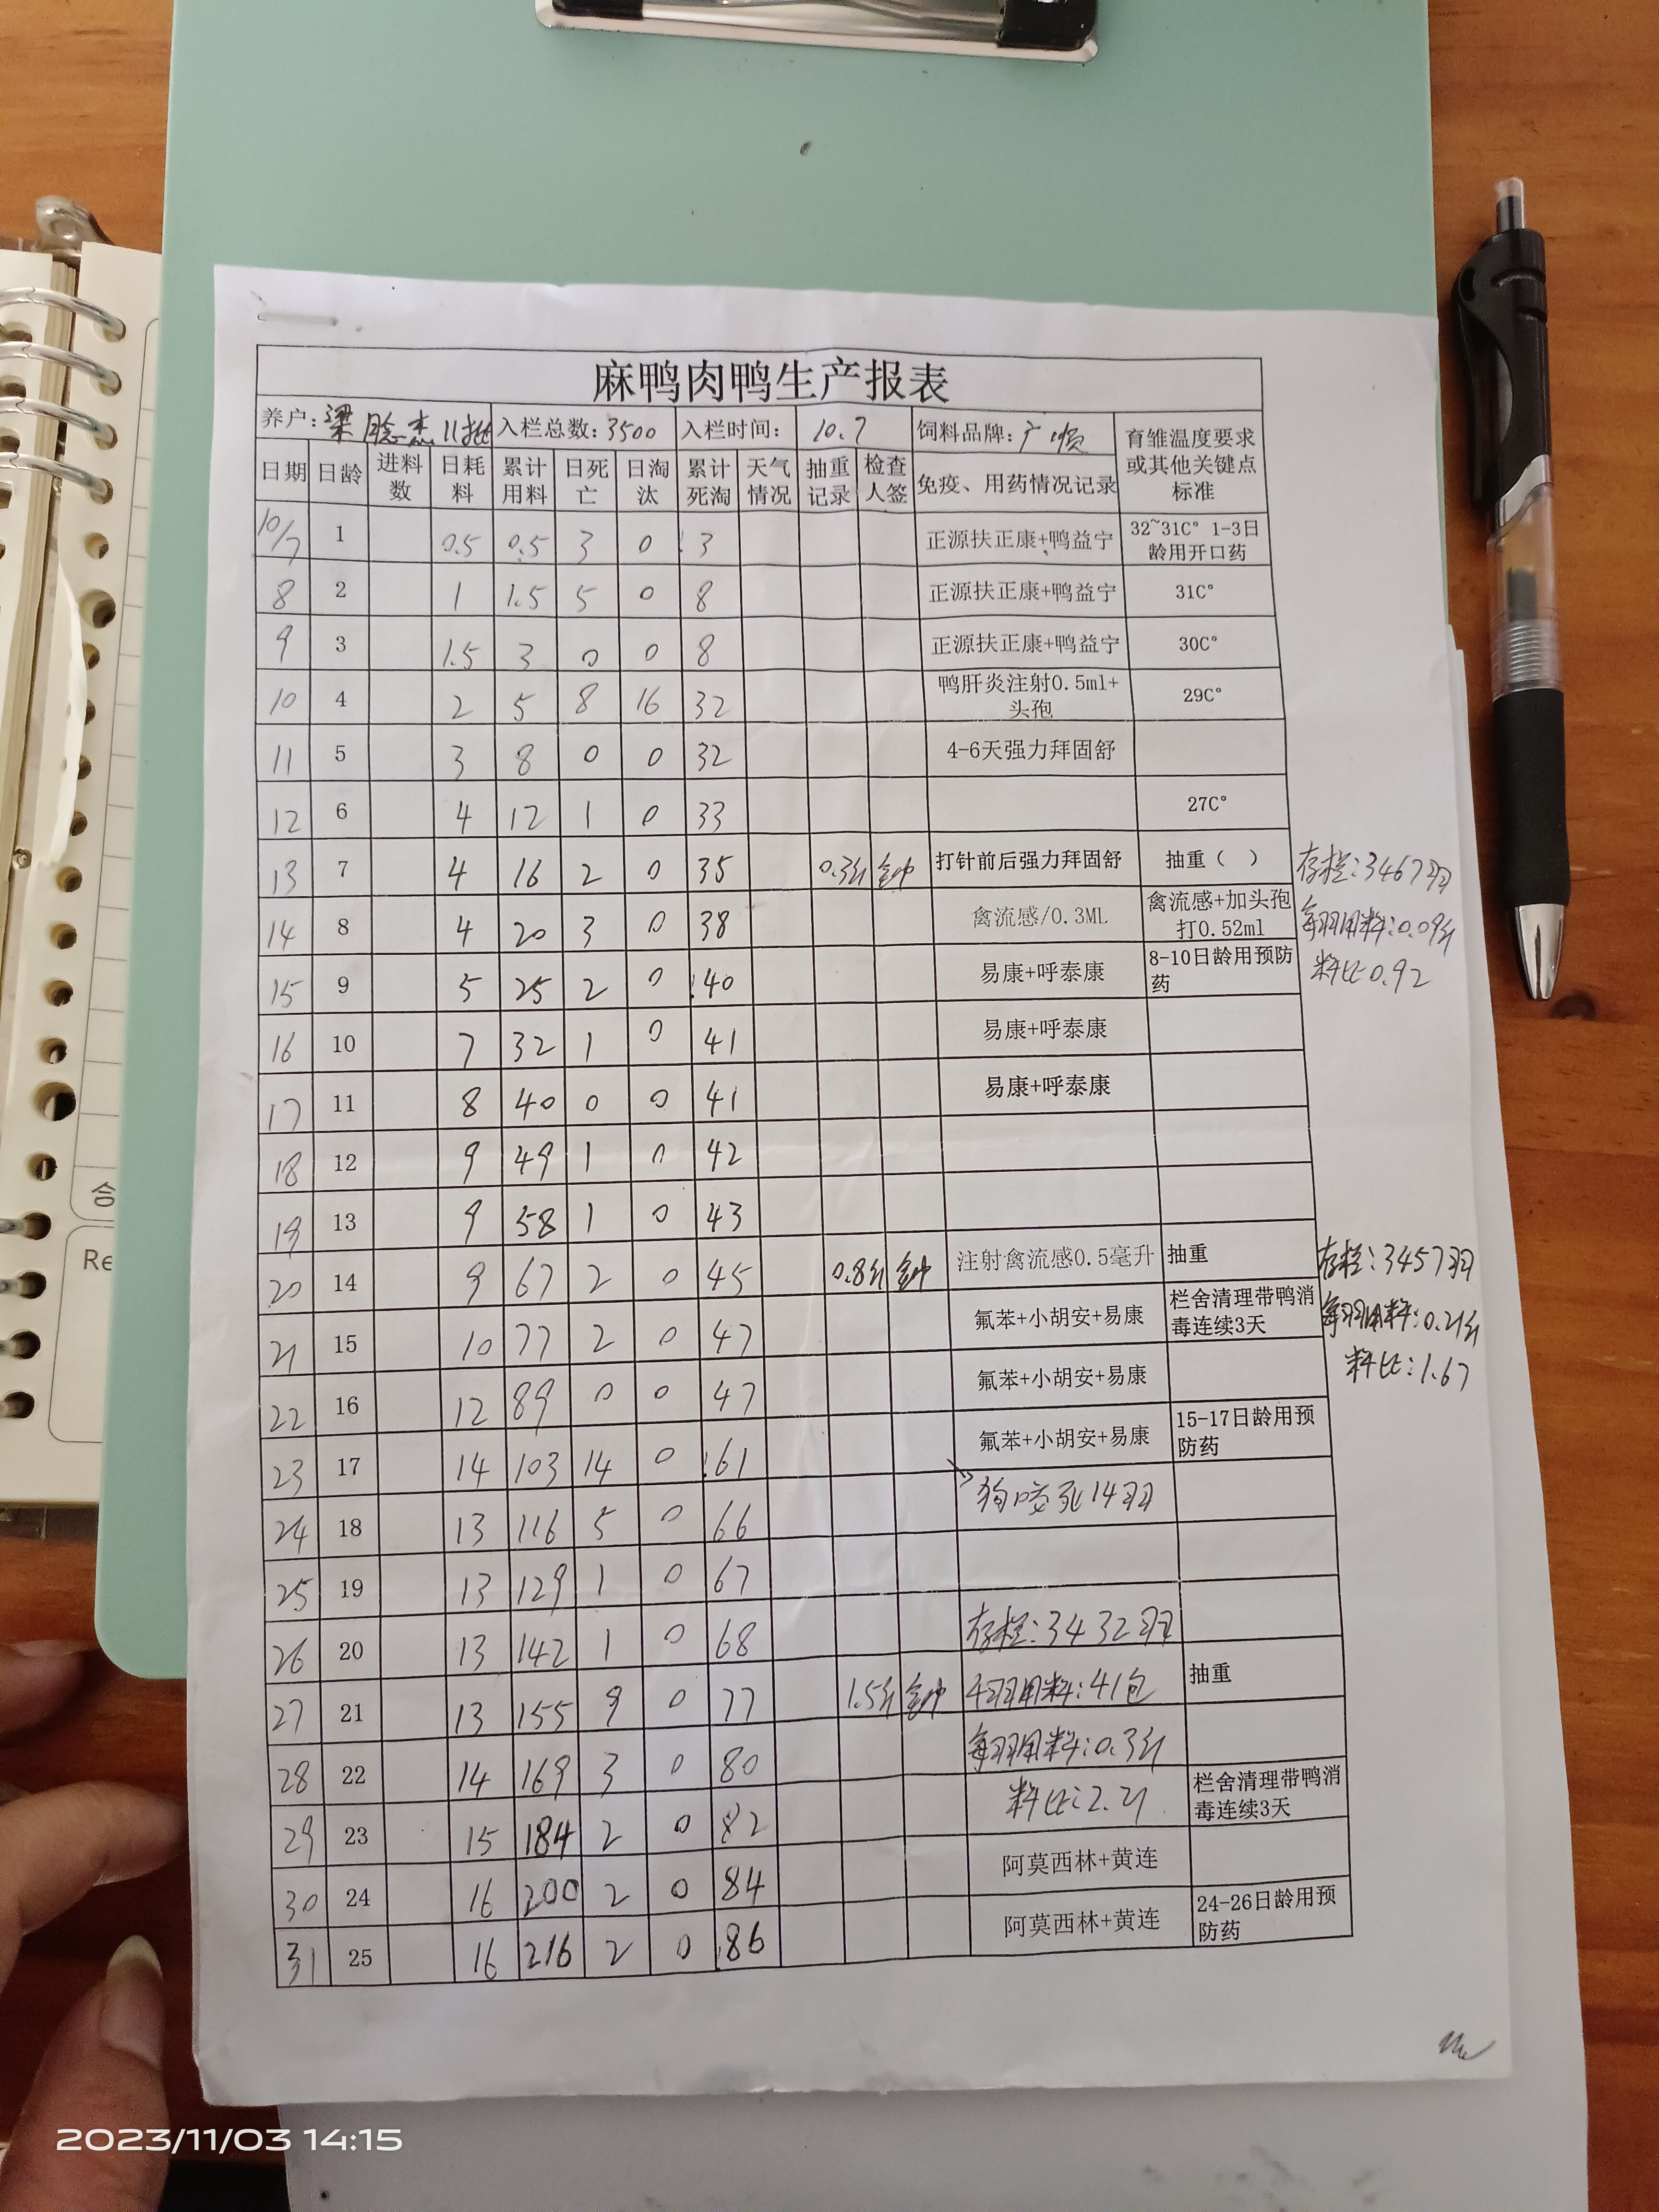 麻鸭肉鸭生产报表
养户: 梁 杰 11批 入栏总数: 3500 入栏时间: 10.7 饲料品牌: 广顺 育雏温度要求或其他关键点标准
日期 日龄 进料数 日耗料 累计用料 日死亡 日淘汰 累计死淘 天气情况 抽重记录 检查人签 免疫、用药情况记录
10/7 1 0.5 0.5 3 0 3 正源扶正康+鸭益宁 32~31C° 1-3日龄用开口药
8 2 1 1.5 5 0 8 正源扶正康+鸭益宁 31C°
9 3 1.5 3 0 0 8 正源扶正康+鸭益宁 30C°
10 4 2 5 8 16 32 鸭肝炎注射0.5ml+头孢 29C°
11 5 3 8 0 0 32 4-6天强力拜固舒
12 6 4 12 1 0 33 27C°
13 7 4 16 2 0 35 0.3斤 打针前后强力拜固舒 抽重（ ） 存栏:3467羽
14 8 4 20 3 0 38 禽流感/0.3ML 禽流感+加头孢打0.52ml 每羽用料:0.09斤
15 9 5 25 2 0 40 易康+呼泰康 8-10日龄用预防药 料比0.92
16 10 7 32 1 0 41 易康+呼泰康
17 11 8 40 0 0 41 易康+呼泰康
18 12 9 49 1 0 42
19 13 9 58 1 0 43
20 14 9 67 2 0 45 0.8斤 注射禽流感0.5毫升 抽重 存栏:3457羽
21 15 10 77 2 0 47 氟苯+小胡安+易康 栏舍清理带鸭消毒连续3天 每羽用料:0.21斤
22 16 12 89 0 0 47 氟苯+小胡安+易康 料比:1.67
23 17 14 103 14 0 61 氟苯+小胡安+易康 15-17日龄用预防药
24 18 13 116 5 0 66 狗咬死14羽
25 19 13 129 1 0 67
26 20 13 142 1 0 68 存栏:3432羽
27 21 13 155 9 0 77 1.5斤 羽用料:41包 抽重
28 22 14 169 3 0 80 每羽用料:0.3斤
29 23 15 184 2 0 82 料比:2.21 栏舍清理带鸭消毒连续3天
30 24 16 200 2 0 84 阿莫西林+黄连
31 25 16 216 2 0 86 阿莫西林+黄连 24-26日龄用预防药
合
Re
2023/11/03 14:15